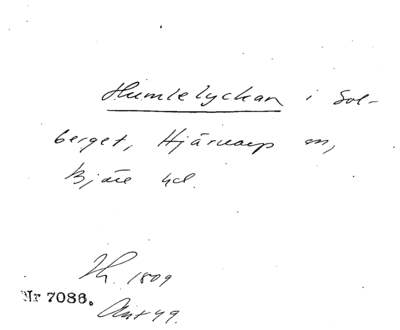 Humlelyckan i Sol-
berget, Hjärnarp sn,
Bjäre hd.
Th. 1809
Nr 7086.
Ant 49.